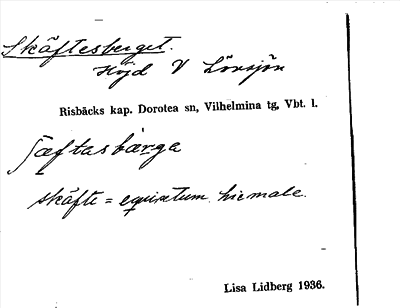 Skäftesberget.
Höjd V Lövsjön
Risbäcks kap. Dorotea sn, Vilhelmina tg, Vbt. l.
ʃæftasbärga
skäfte = equisetum hiemale.
Lisa Lidberg 1936.